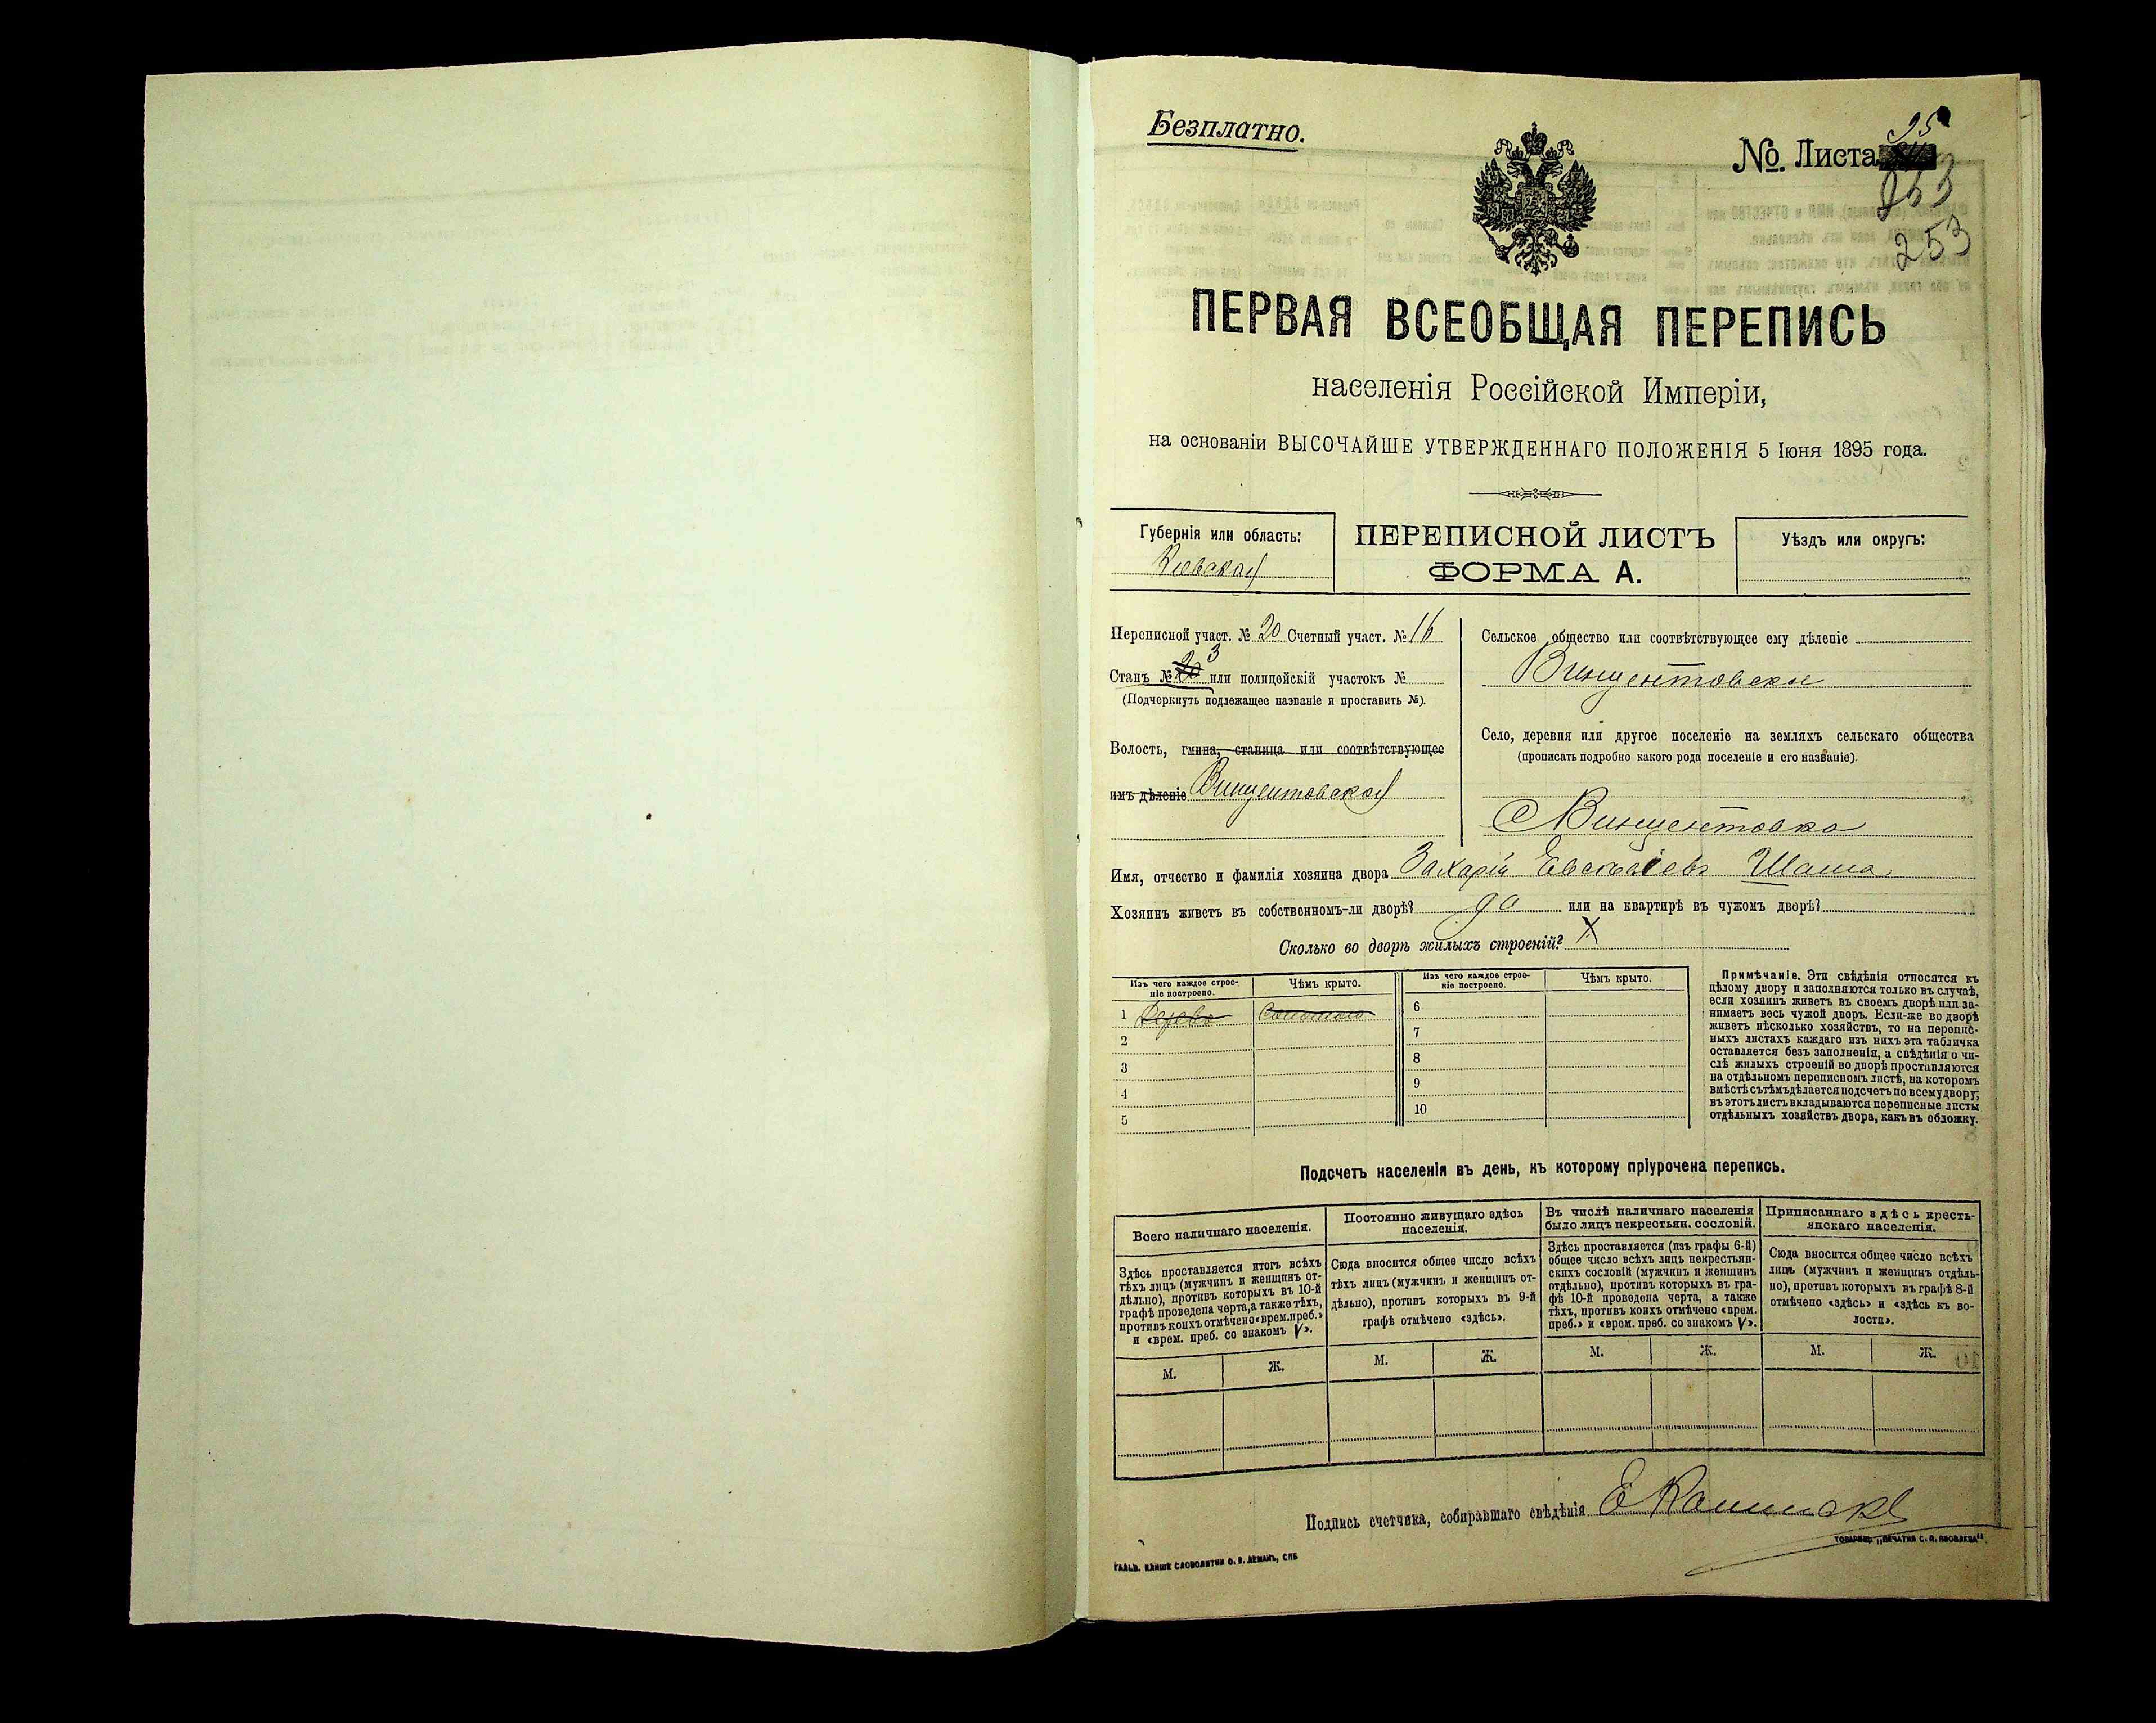 Безплатно.
№. Листа 95
253
253
ПЕРВАЯ ВСЕОБЩАЯ ПЕРЕПИСЬ
населенія Россійской Имперіи,
на основаніи ВЫСОЧАЙШЕ УТВЕРЖДЕННАГО ПОЛОЖЕНІЯ 5 Іюня 1895 года.
Губернія или область:
Кіевская
ПЕРЕПИСНОЙ ЛИСТЪ
ФОРМА А.
Уѣздъ или округъ:
Переписной участ. № 20 Счетный участ. № 16
Станъ № 20 3 или полицейскій участокъ №
(Подчеркнуть подлежащее названіе и проставить №).
Волость, гмина, станица или соотвѣтствующее
имъ дѣленіе Винцентовская
Сельское общество или соотвѣтствующее ему дѣленіе
Винцентовское
Село, деревня или другое поселеніе на земляхъ сельскаго общества
(прописать подробно какого рода поселеніе и его названіе).
с Винцентовка
Имя, отчество и фамилія хозяина двора Захарій Евсевіевъ Шаша
Хозяинъ живетъ въ собственномъ-ли дворѣ? да или на квартирѣ въ чужомъ дворѣ?
Сколько во дворѣ жилыхъ строеній? X
Изъ чего каждое строе-
ніе построено.
Чѣмъ крыто.
1 Дерево Соломою
2
3
4
5
Изъ чего каждое строе-
ніе построено.
Чѣмъ крыто.
6
7
8
9
10
Примѣчаніе. Эти свѣдѣнія относятся къ
цѣлому двору и заполняются только въ случаѣ,
если хозяинъ живетъ въ своемъ дворѣ или за-
нимаетъ весь чужой дворъ. Если-же во дворѣ
живетъ нѣсколько хозяйствъ, то на перепис-
ныхъ листахъ каждаго изъ нихъ эта табличка
оставляется безъ заполненія, а свѣдѣнія о чи-
слѣ жилыхъ строеній во дворѣ проставляются
на отдѣльномъ переписномъ листѣ, на которомъ
вмѣстѣ съ тѣмъ дѣлается подсчетъ по всему двору;
въ этотъ листъ вкладываются переписные листы
отдѣльныхъ хозяйствъ двора, какъ въ обложку.
Подсчетъ населенія въ день, къ которому пріурочена перепись.
Всего наличнаго населенія.
Здѣсь проставляется итогъ всѣхъ
тѣхъ лицъ (мужчинъ и женщинъ от-
дѣльно), противъ которыхъ въ 10-й
графѣ проведена черта, а также тѣхъ,
противъ коихъ отмѣчено «врем. преб.»
и «врем. преб. со знакомъ V».
М. Ж.
Постоянно живущаго здѣсь
населенія.
Сюда вносится общее число всѣхъ
тѣхъ лицъ (мужчинъ и женщинъ от-
дѣльно), противъ которыхъ въ 9-й
графѣ отмѣчено «здѣсь».
М. Ж.
Въ числѣ наличнаго населенія
было лицъ некрестьян. сословій.
Здѣсь проставляется (изъ графы 6-й)
общее число всѣхъ лицъ некрестьян-
скихъ сословій (мужчинъ и женщинъ
отдѣльно), противъ которыхъ въ гра-
фѣ 10-й проведена черта, а также
тѣхъ, противъ коихъ отмѣчено «врем.
преб.» и «врем. преб. со знакомъ V».
М. Ж.
Приписаннаго здѣсь кресть-
янскаго населенія.
Сюда вносится общее число всѣхъ
лицъ (мужчинъ и женщинъ отдѣль-
но), противъ которыхъ въ графѣ 8-й
отмѣчено «здѣсь» и «здѣсь къ во-
лости».
М. Ж.
Подпись счетчика, собиравшаго свѣдѣнія Е
ГАЛЬВ. КЛИШЕ СЛОВОЛИТНИ О. И. ЛЕМАНЪ, СПБ
ТОВАРИЩ. „ПЕЧАТНЯ С. П. ЯКОВЛЕВА"